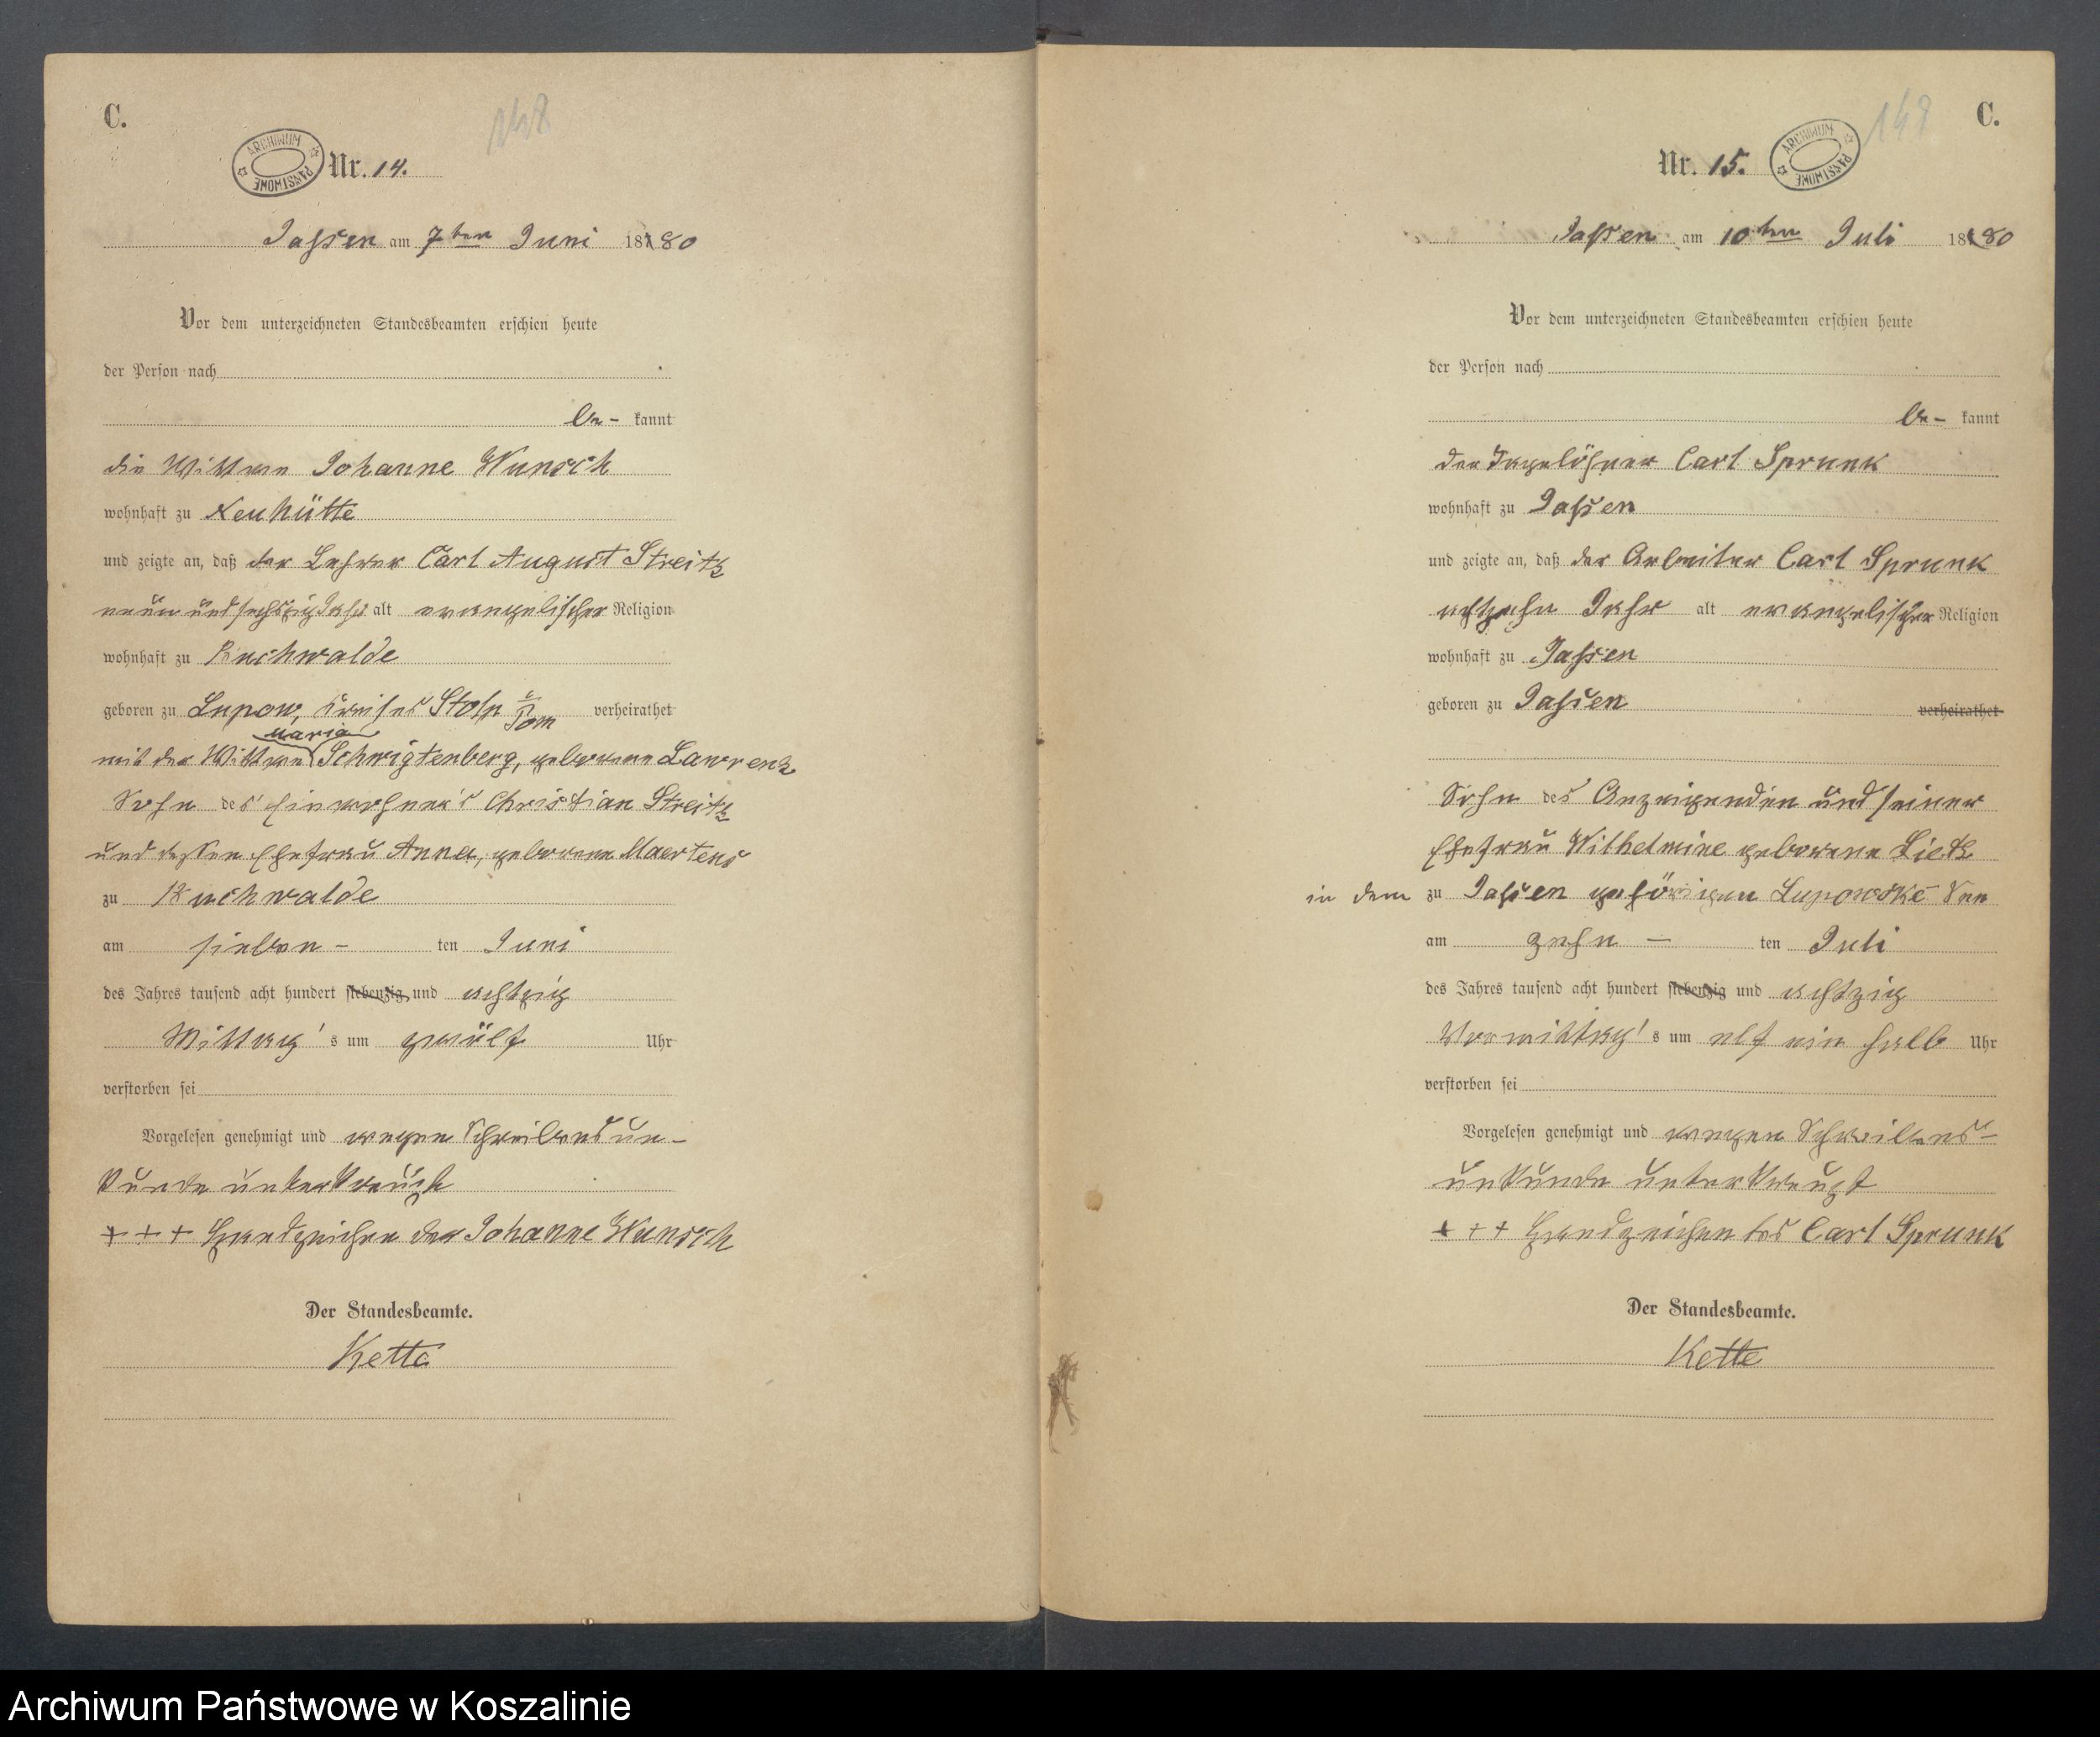 C.
148
ARCHIWUM PAŃSTWOWE
Nr. 14.
Jassen am 7ten Juni 1880
Vor dem unterzeichneten Standesbeamten erschien heute
der Person nach
be- kannt
die Wittwe Johanne Wunsch
wohnhaft zu Neuhütte
und zeigte an, daß der Lehrer Carl August Streitz
neun und sechszig Jahr alt evangelischer Religion
wohnhaft zu Buchwalde
geboren zu Lupow, Kreises Stolp i/Pom verheirathet
Maria
mit der Wittwe Schwigtenberg, geborene Lawrenz
Sohn des Einwohner's Christian Streitz
und dessen Ehefrau Anna, geborene Maertens
zu Buchwalde
am sieben - ten Juni
des Jahres tausend acht hundert siebenzig und achtzig
Mittag's um zwölf Uhr
verstorben sei
Vorgelesen genehmigt und wegen Schreibensun-
kunde unterkreuzt
+ + + Handzeichen der Johanne Wunsch
Der Standesbeamte.
Kette
C.
149
ARCHIWUM PAŃSTWOWE
Nr. 15.
Jassen am 10ten Juli 1880
Vor dem unterzeichneten Standesbeamten erschien heute
der Person nach
be- kannt
der Tagelöhner Carl Sprunk
wohnhaft zu Jassen
und zeigte an, daß der Arbeiter Carl Sprunk
achtzehn Jahr alt evangelischer Religion
wohnhaft zu Jassen
geboren zu Jassen verheirathet
Sohn des Anzeigenden und seiner
Ehefrau Wilhelmine geborene Lietz
in dem zu Jassen gehörigen Lupowske See
am zehn - ten Juli
des Jahres tausend acht hundert siebenzig und achtzig
Vormittag's um elf ein halb Uhr
verstorben sei
Vorgelesen genehmigt und wegen Schreibens-
unkunde unterkreuzt
+ + + Handzeichen des Carl Sprunk
Der Standesbeamte.
Kette
Archiwum Państwowe w Koszalinie